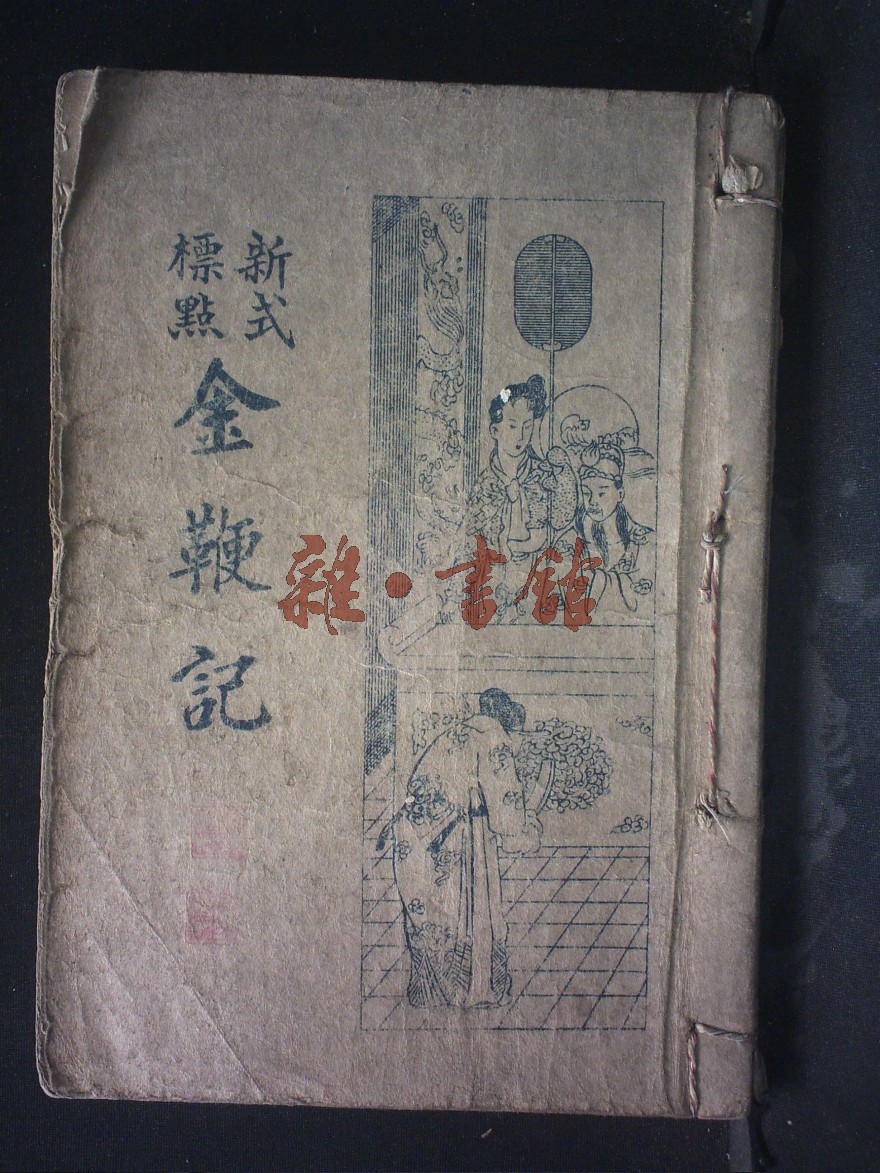 新式
標點
金鞭記
雜·書館